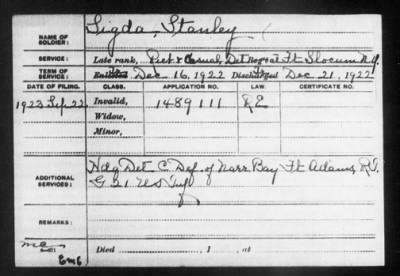 NAME OF SOLDIER: Sigda, Stanley
SERVICE: Late rank, Pvt & Casual, Det Hosp at Ft Slocum N.Y.
TERM OF SERVICE: Enlisted Dec 16, 1922 Discharged Dec 21, 1922
DATE OF FILING. CLASS. APPLICATION NO. LAW. CERTIFICATE NO.
1923 Sep 22 Invalid, 1489111
Widow,
Minor,
ADDITIONAL SERVICES: Hdq Det C. Def. of Narr. Bay Ft Adams, R.I.
G 21 US Inf
REMARKS:
Died , 1 , at